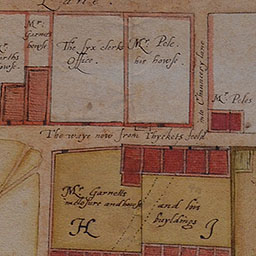 Mr.
Garnets
howse
The syx clerks
Office.
Mr. Pole.
his howse.
howse.
into Chauncery lane
Mr. Poles
The waye now from Fickets feeld
Mr. Garnetts
inclosure and howse
and his
buyldings
H
I